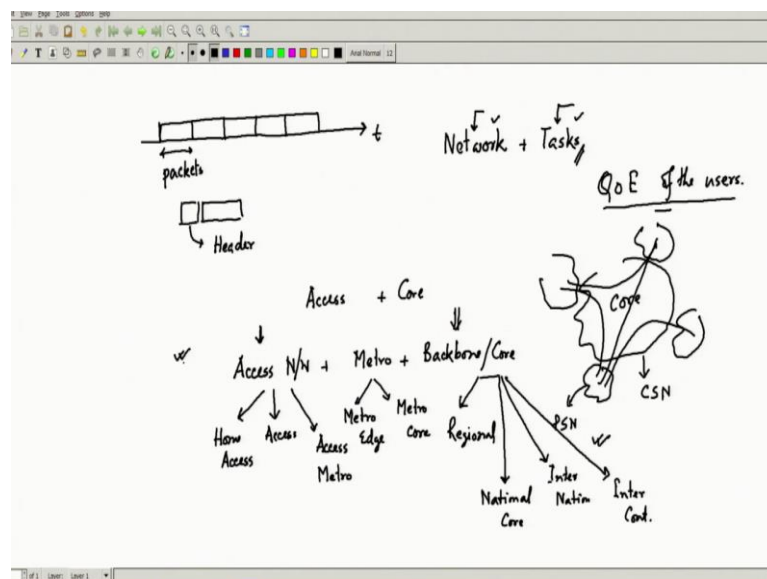 View Page Tools Options Help
T
Arial Normal 12
t
packets
Header
Network + Tasks
QoE of the users.
Access + Core
Access N/W + Metro + Backbone/Core
Home Access
Access
Access Metro
Metro Edge
Metro Core
Regional
National Core
Inter Nation
Inter Cont.
Core
CSN
PSN
of 1 Layer: Layer 1